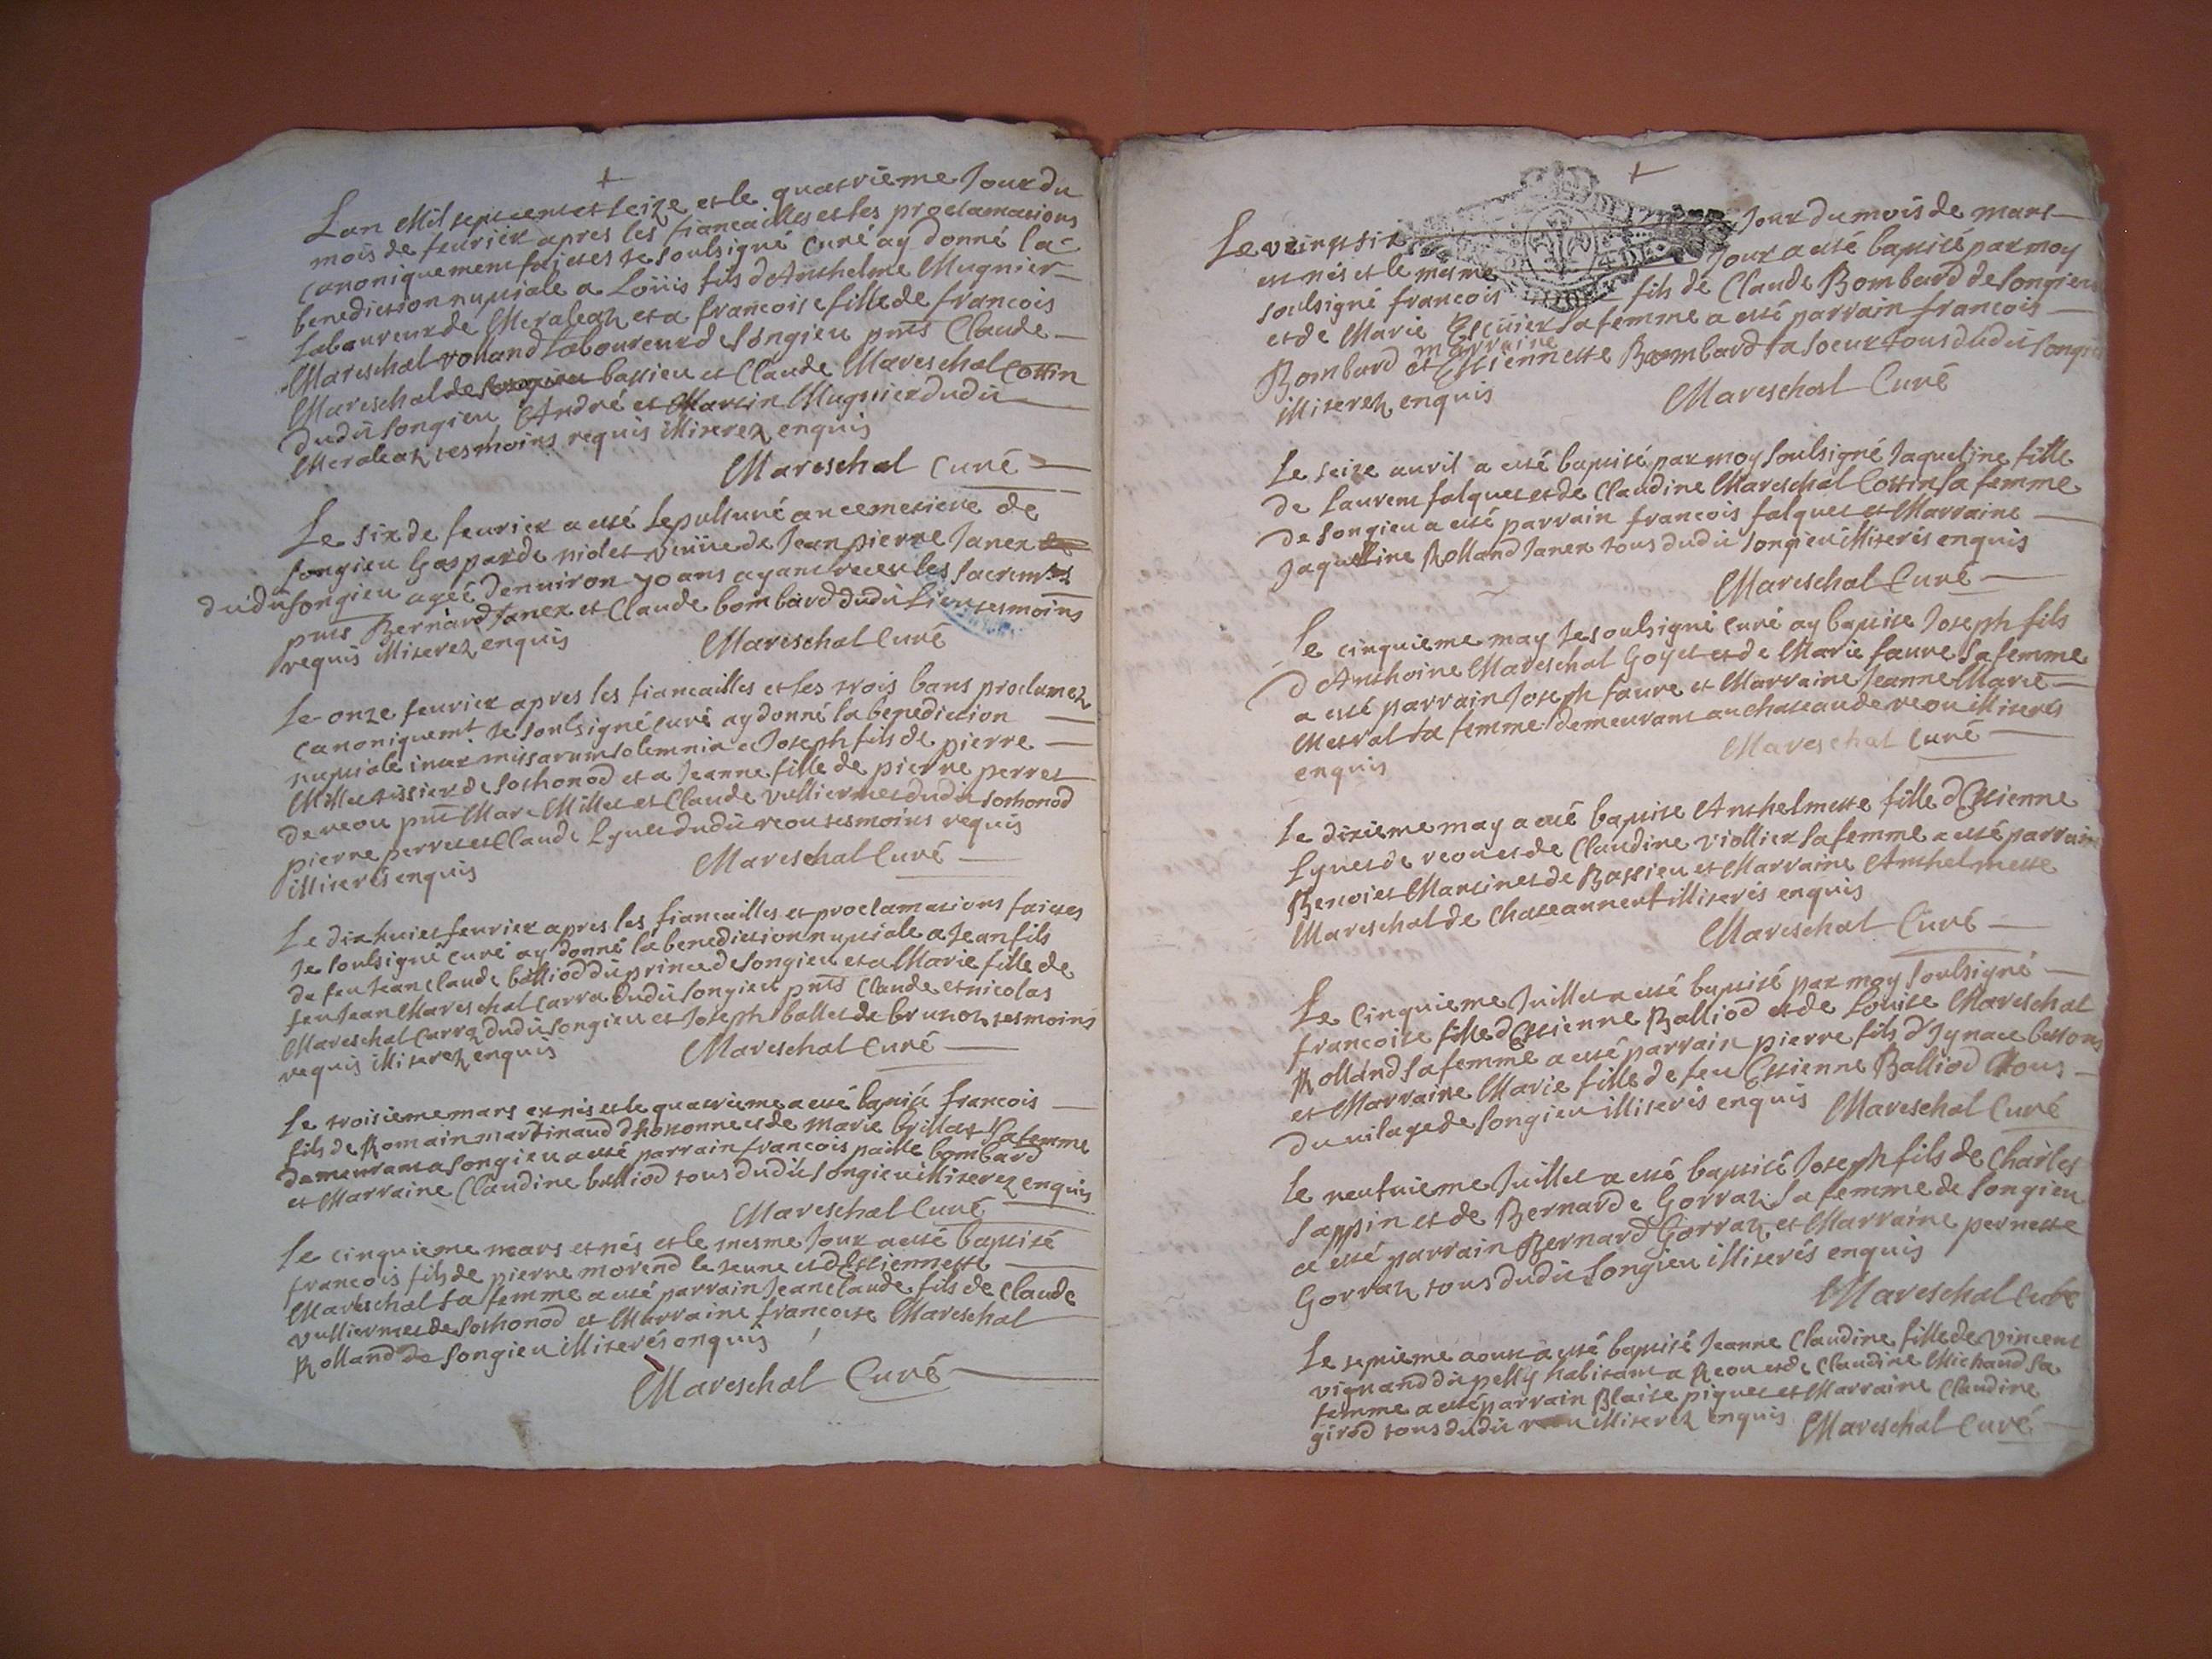 Lan Mil sept cent et seize et le quatrieme Jour du
mois de feurier apres les fiancailles et les proclamations
canoniquement faittes Je soulsigné Curé ay donné la
benediction nuptiale a Loüis fils d'Anthelme Mugnier
laboureur de Meraleaz et a francoise fille de francois
Mareschal rolland laboureur de Songieu pnts Claude
Mareschal de songieu bassieu et Claude Mareschal Cottin
dudit songieu André et Martin Mugnier dudit
Meraleaz tesmoins requis illiterez enquis
Mareschal Curé
Le six de feurier a esté sepulturé au cemetiere de
songieu Gasparde niolet veüue de Jean pierre Janex
dudit songieu agée denuiron 70 ans ayant receu les sacremts
pnts Bernard Janex et Claude bombard dudit Lieu tesmoins
requis illiterez enquis Mareschal Curé
Le onze feurier apres les fiancailles et les trois bans proclamez
canoniquemt Je soulsigné curé ay donné la benediction
nuptiale intra missarum solemnia a Joseph fils de pierre
Millet tissier de sothonod et a Jeanne fille de pierre perret
de reou pnts Marc Millet et Claude vulliermet dudit sothonod
pierre perret et Claude Lynet dudit reou tesmoins requis
illiterés enquis Mareschal Curé
Le dix huiet feurier apres les fiancailles et proclamations faittes
Je soulsigné curé ay donné la benediction nuptiale a Jean fils
de feu Jean claude balliod du prince de songieu et a Marie fille de
feu Jean Mareschal Carra dudit songieu pnts Claude et nicolas
Mareschal Carraz dudit songieu et Joseph ballet de brunoz tesmoins
requis illiterez enquis Mareschal Curé
Le troisieme mars est nés et le quatrieme a esté baptisé francois
fils de Romain martinaud d'hotonne et de Marie brillat sa femme
demeurant a songieu a esté parrain francois paille bombard
et Marraine Claudine balliod tous dudit songieu illiterez enquis
Mareschal Curé
Le cinquieme mars est nés et le mesme Jour a esté baptisé
francois fils de pierre morend le Jeune et d'Estiennette
Mareschal sa femme a esté parrain Jean claude fils de Claude
vulliermet de sothonod et Marraine francoise Mareschal
Rolland de songieu illiterés enquis
Mareschal Curé
Le vingt six Jour du mois de mars
est nés et le mesme Jour a esté baptisé par moy
soulsigné francois fils de Claude Bombard de songieu
et de Marie Escuiier sa femme a esté parrain francois
Bombard et marraine Estiennette Bombard sa soeur tous dudit songieu
illiterez enquis Mareschal Curé
Le seize auril a esté baptisé par moy soulsigné Jaqueline fille
de Laurent falquet et de Claudine Mareschal Cottin sa femme
de songieu a esté parrain francois falquet et Marraine
Jaqueline Rolland Janex tous dudit songieu illiterés enquis
Mareschal Curé
Le cinquieme may Je soulsigné curé ay baptise Joseph fils
d'Anthoine Mareschal Goyet et de Marie faure sa femme
a esté parrain Joseph faure et Marraine Jeanne Marie
Mestral sa femme demeurant au chateau de reou illiterés
enquis Mareschal Curé
Le dixieme may a esté baptise Anthelmette fille d'Estienne
Lynet de reou et de Claudine viollier sa femme a esté parrain
Benoiet Martinet de Bassieu et Marraine Anthelmette
Mareschal de chateauneuf illiterés enquis
Mareschal Curé
Le cinquieme Juillet a esté baptisé par moy soulsigné
francoise fille d'Estienne Balliod et de Louise Mareschal
Rolland sa femme a esté parrain pierre fils d'Ignace
et Marraine Marie fille de feu Estienne Balliod tous
du vilage de songieu illiterés enquis Mareschal Curé
Le neufuieme Juillet a esté baptisé Joseph fils de Charles
Sappin et de Bernarde Gorraz sa femme de songieu
a esté parrain Bernard Gorraz et Marraine pernette
Gorraz tous dudit songieu illiterés enquis
Mareschal Curé
Le septieme aoust a esté baptisé Jeanne Claudine fille de vincent
vignand du petty habitant a Reou et de Claudine Michaud sa
femme a esté parrain Blaise piquet et Marraine Claudine
girod tous dudit reou illiterez enquis Mareschal Curé